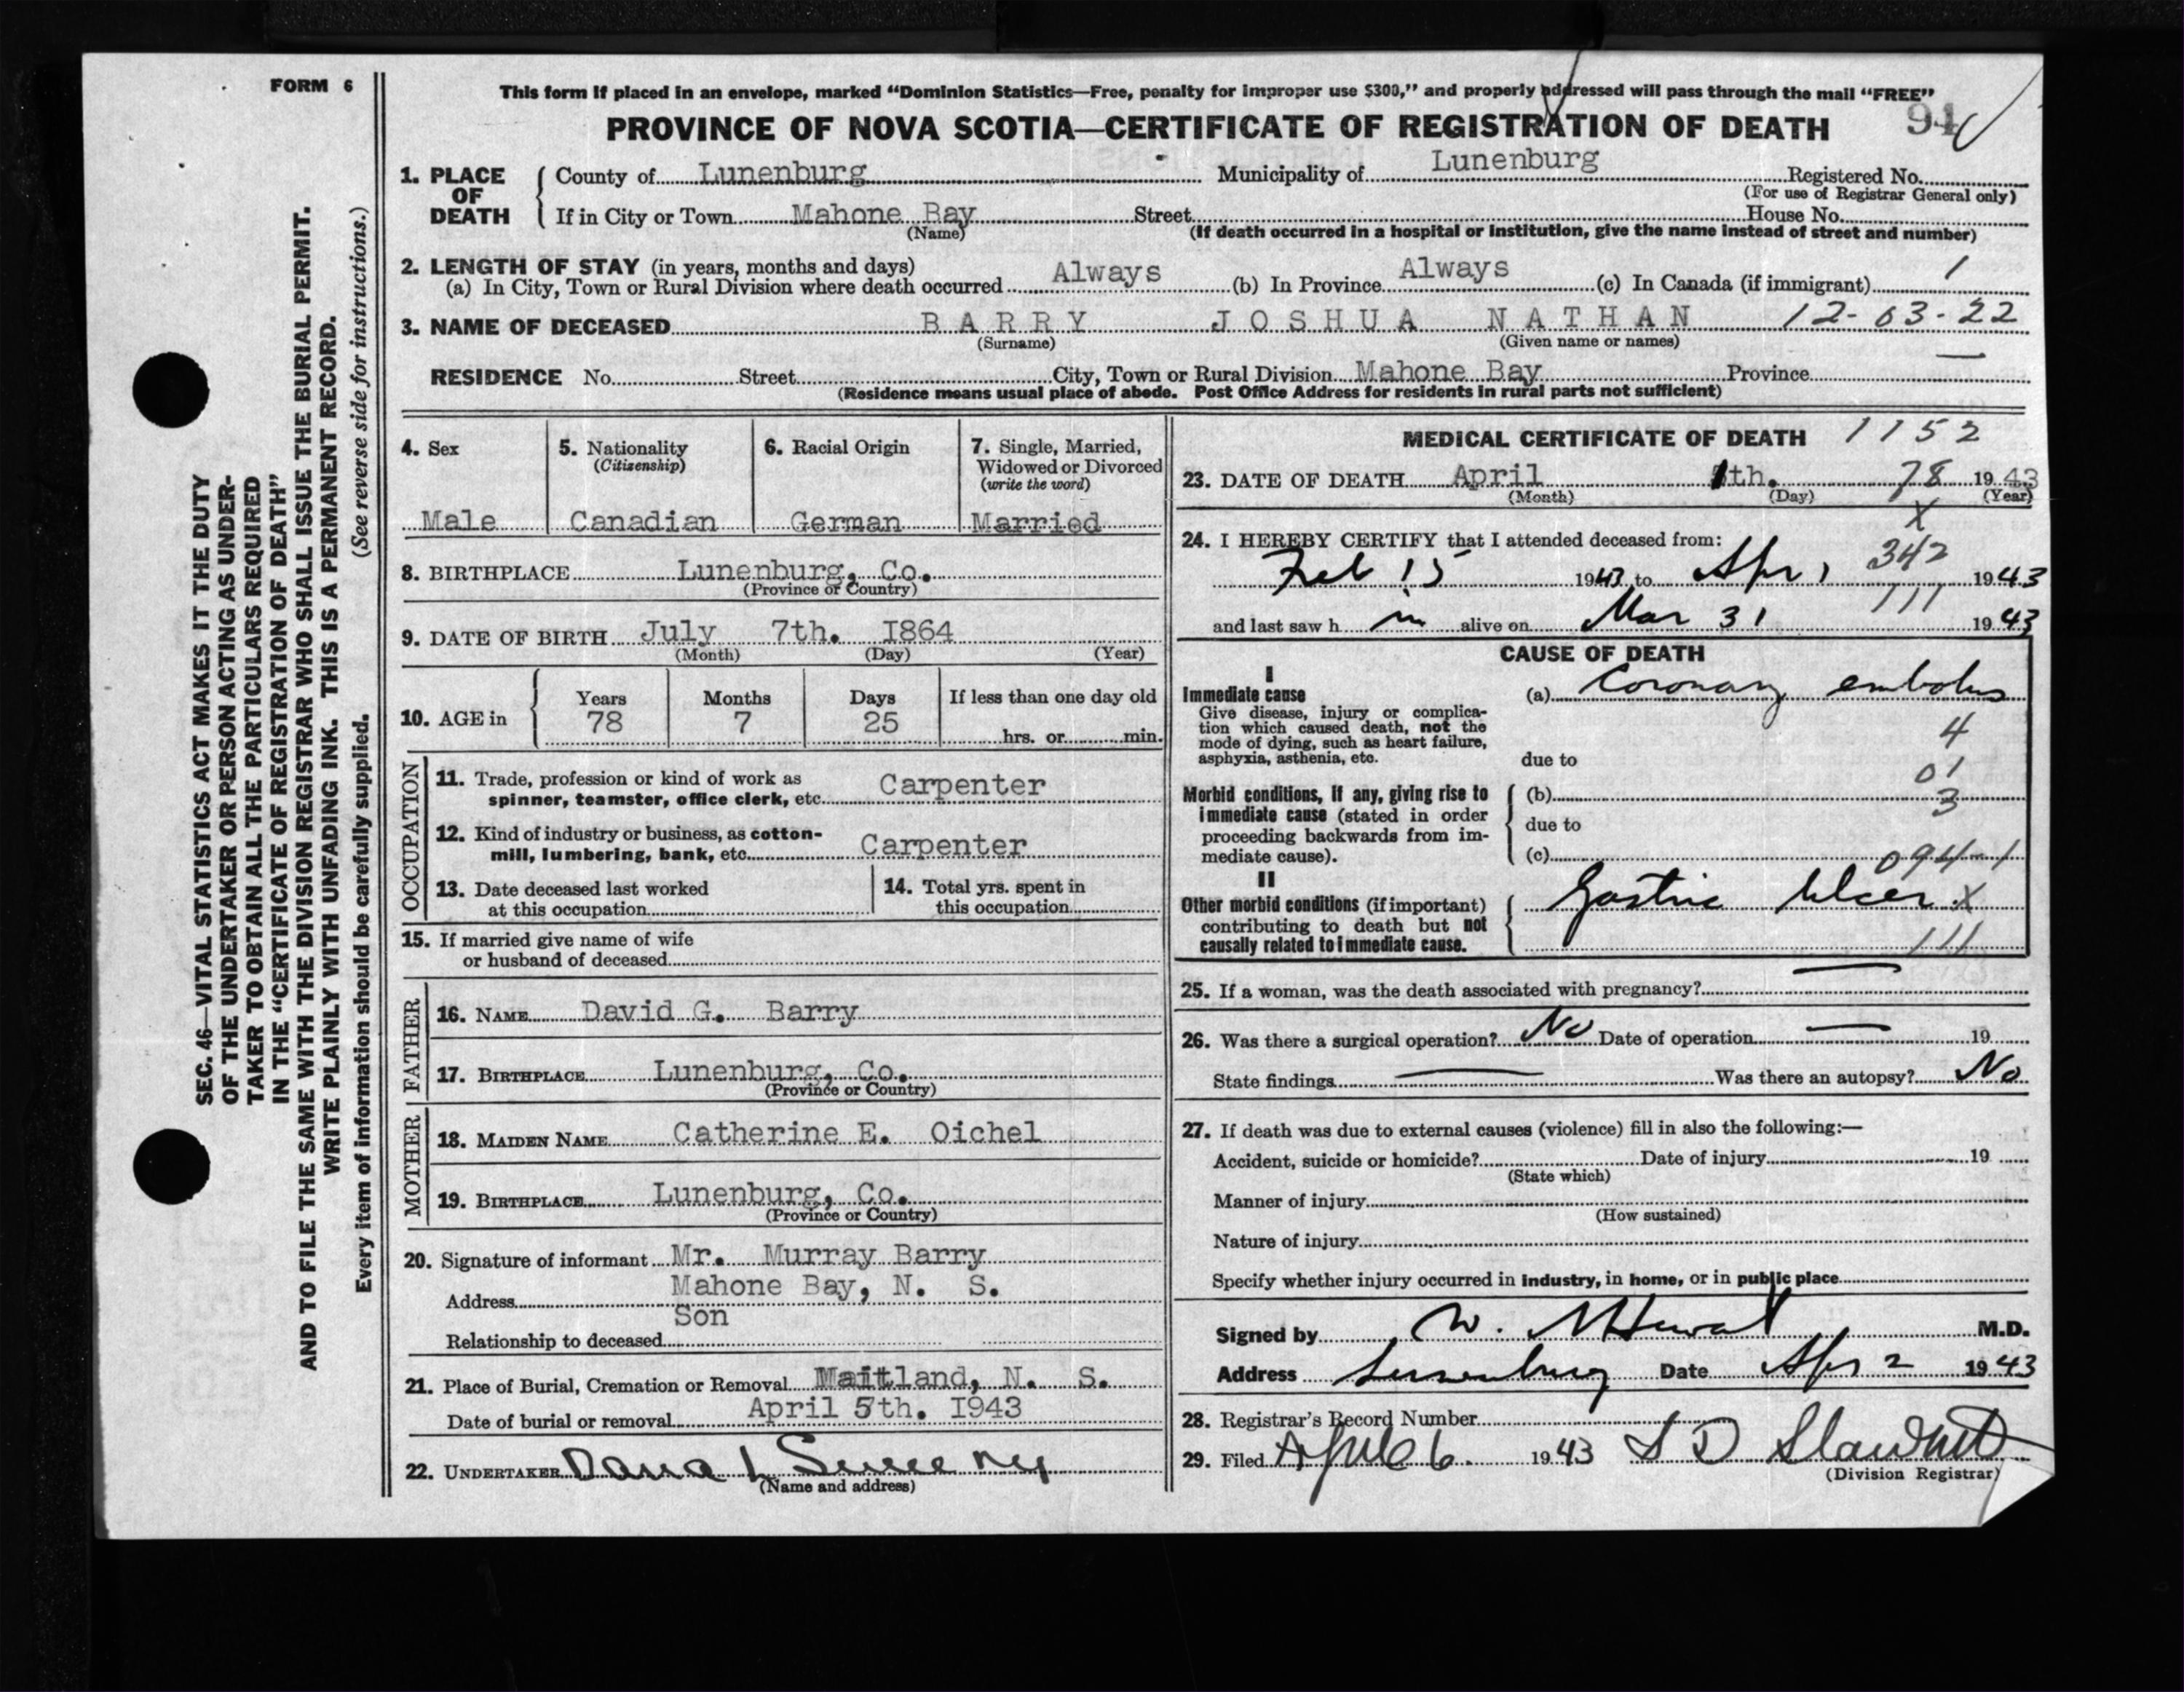 FORM 6
This form if placed in an envelope, marked “Dominion Statistics—Free, penalty for improper use $300,” and properly addressed will pass through the mail “FREE”
PROVINCE OF NOVA SCOTIA—CERTIFICATE OF REGISTRATION OF DEATH 94
1. PLACE OF DEATH
County of Lunenburg Municipality of Lunenburg Registered No.
(For use of Registrar General only)
If in City or Town Mahone Bay Street House No.
(Name) (If death occurred in a hospital or institution, give the name instead of street and number)
2. LENGTH OF STAY (in years, months and days)
(a) In City, Town or Rural Division where death occurred Always (b) In Province Always (c) In Canada (if immigrant) 1
3. NAME OF DECEASED BARRY JOSHUA NATHAN 12-03-22
(Surname) (Given name or names)
RESIDENCE No. Street City, Town or Rural Division Mahone Bay Province —
(Residence means usual place of abode. Post Office Address for residents in rural parts not sufficient)
4. Sex
Male
5. Nationality
(Citizenship)
Canadian
6. Racial Origin
German
7. Single, Married,
Widowed or Divorced
(write the word)
Married
8. BIRTHPLACE Lunenburg, Co.
(Province or Country)
9. DATE OF BIRTH July 7th. I864
(Month) (Day) (Year)
10. AGE in
Years Months Days If less than one day old
78 7 25 hrs. or min.
OCCUPATION
11. Trade, profession or kind of work as
spinner, teamster, office clerk, etc. Carpenter
12. Kind of industry or business, as cotton-
mill, lumbering, bank, etc. Carpenter
13. Date deceased last worked
at this occupation
14. Total yrs. spent in
this occupation
15. If married give name of wife
or husband of deceased
FATHER
16. NAME David G. Barry
17. BIRTHPLACE Lunenburg, Co.
(Province or Country)
MOTHER
18. MAIDEN NAME Catherine E. Oichel
19. BIRTHPLACE Lunenburg, Co.
(Province or Country)
20. Signature of informant Mr. Murray Barry
Address Mahone Bay, N. S.
Relationship to deceased Son
21. Place of Burial, Cremation or Removal Maitland, N. S.
Date of burial or removal April 5th. I943
22. UNDERTAKER
(Name and address)
MEDICAL CERTIFICATE OF DEATH 1152
23. DATE OF DEATH April 1th. 78 1943
(Month) (Day) (Year)
X
24. I HEREBY CERTIFY that I attended deceased from:
342
Feb 15 1943 to Apr 1 1943
111
and last saw h im alive on Mar 31 1943
CAUSE OF DEATH
I
Immediate cause
Give disease, injury or complica-
tion which caused death, not the
mode of dying, such as heart failure,
asphyxia, asthenia, etc.
(a) Coronary embolus
4
due to
01
Morbid conditions, if any, giving rise to
immediate cause (stated in order
proceeding backwards from im-
mediate cause).
(b)
3
due to
(c) 094-1
II
Other morbid conditions (if important)
contributing to death but not
causally related to immediate cause.
Gastric Ulcer X
111
25. If a woman, was the death associated with pregnancy? —
26. Was there a surgical operation? No Date of operation — 19
State findings — Was there an autopsy? No
27. If death was due to external causes (violence) fill in also the following:—
Accident, suicide or homicide? Date of injury 19
(State which)
Manner of injury
(How sustained)
Nature of injury
Specify whether injury occurred in industry, in home, or in public place
Signed by W. M.D.
Address Lunenburg Date Apr 2 1943
28. Registrar's Record Number
29. Filed April 6. 1943 S D
(Division Registrar)
SEC. 46—VITAL STATISTICS ACT MAKES IT THE DUTY
OF THE UNDERTAKER OR PERSON ACTING AS UNDER-
TAKER TO OBTAIN ALL THE PARTICULARS REQUIRED
IN THE “CERTIFICATE OF REGISTRATION OF DEATH”
AND TO FILE THE SAME WITH THE DIVISION REGISTRAR WHO SHALL ISSUE THE BURIAL PERMIT.
WRITE PLAINLY WITH UNFADING INK. THIS IS A PERMANENT RECORD.
Every item of information should be carefully supplied. (See reverse side for instructions.)